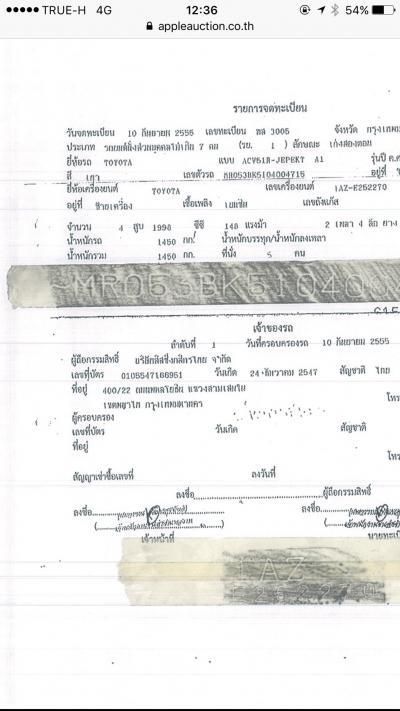 TRUE-H 4G 12:36 54%
appleauction.co.th
รายการจดทะเบียน
วันจดทะเบียน 10 กันยายน 2555 เลขทะเบียน 3005 จังหวัด
ประเภท รถยนต์นั่งส่วนบุคคลไม่เกิน 7 คน (รย. 1) ลักษณะ เก๋งสองตอน
ยี่ห้อรถ TOYOTA แบบ ACV51R-JEPEKT A1 รุ่นปี ค.ศ
สี เทา เลขตัวรถ MR053BK5104004715 อยู่ที่
ยี่ห้อเครื่องยนต์ TOYOTA เลขเครื่องยนต์ 1AZ-E252270
อยู่ที่ ซ้ายเครื่อง เชื้อเพลิง เบนซิน เลขถังแก๊ส
จำนวน 4 สูบ 1998 ซีซี 148 แรงม้า 2 เพลา 4 ล้อ ยาง
น้ำหนักรถ 1450 กก. น้ำหนักบรรทุก/น้ำหนักลงเพลา
น้ำหนักรวม 1450 กก. ที่นั่ง 5 คน
MR053BK51040
เจ้าของรถ
ลำดับที่ 1 วันที่ครอบครองรถ 10 กันยายน 2555
ผู้ถือกรรมสิทธิ์ บริษัทลีสซิ่งกสิกรไทย จำกัด
เลขที่บัตร 0105547166951 วันเกิด 24 ธันวาคม 2547 สัญชาติ ไทย
ที่อยู่ 400/22 ถนนพหลโยธิน แขวงสามเสนใน
เขตพญาไท กรุงเทพมหานคร โทร
ผู้ครอบครอง
เลขที่บัตร วันเกิด สัญชาติ
ที่อยู่
โทร
สัญญาเช่าซื้อเลขที่ ลงวันที่
ลงชื่อ ผู้ถือกรรมสิทธิ์
ลงชื่อ ลงชื่อ
เจ้าหน้าที่ นายทะเบี
1AZ